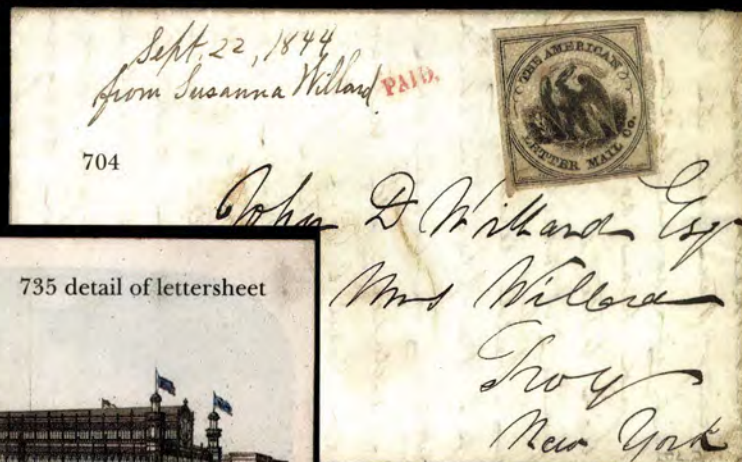 Sept. 22, 1844
from Susanna Willard
PAID.
THE AMERICAN
LETTER MAIL Co.
704
John D Willard Esq
Mrs Willard
Troy
New York
735 detail of lettersheet